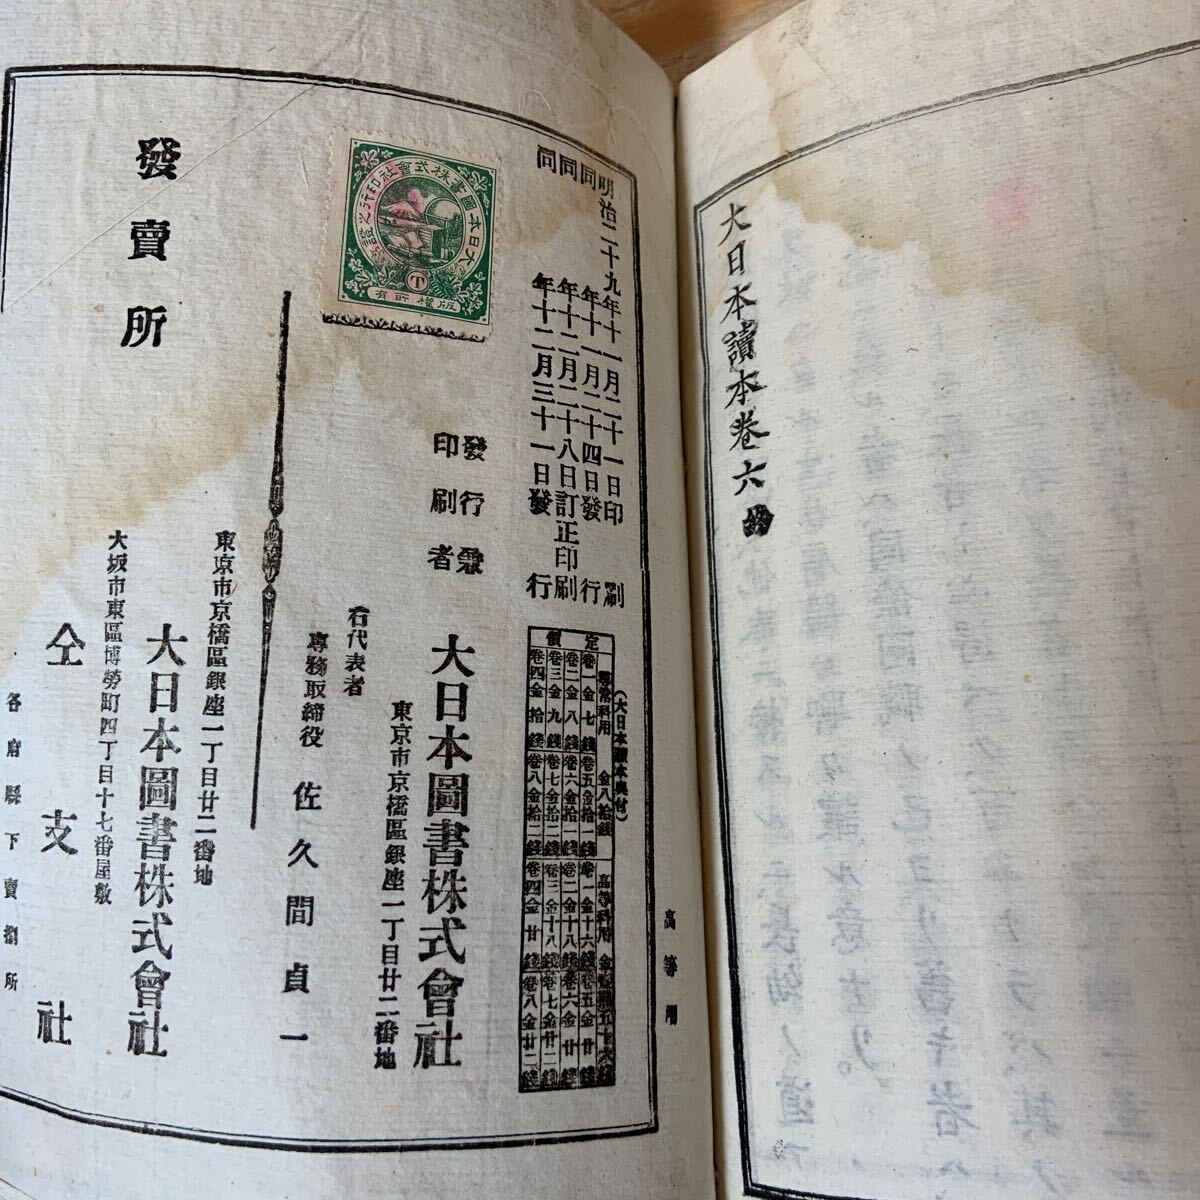 大日本讀本卷六
明治二十九年十一月二十一日印刷
同年十一月二十四日發行
同年十二月二十八日訂正印刷
同年十二月三十一日發行
大日本圖書株式會社印行之證
版權所有
(大日本讀本奧付)
定價
尋常科用 金八拾錢
卷一金七錢 卷五金拾一錢
卷二金八錢 卷六金拾一錢
卷三金九錢 卷七金拾二錢
卷四金拾錢 卷八金拾二錢
高等科用
卷一金十六錢 卷五金廿錢
卷二金十八錢 卷六金廿錢
卷三金十八錢 卷七金廿二錢
卷四金廿錢 卷八金廿二錢
高等用
發行兼
印刷者
大日本圖書株式會社
東京市京橋區銀座一丁目廿二番地
右代表者
專務取締役 佐久間貞一
發賣所
東京市京橋區銀座一丁目廿二番地
大日本圖書株式會社
大坂市東區博勞町四丁目十七番屋敷
仝支社
各府縣下賣捌所